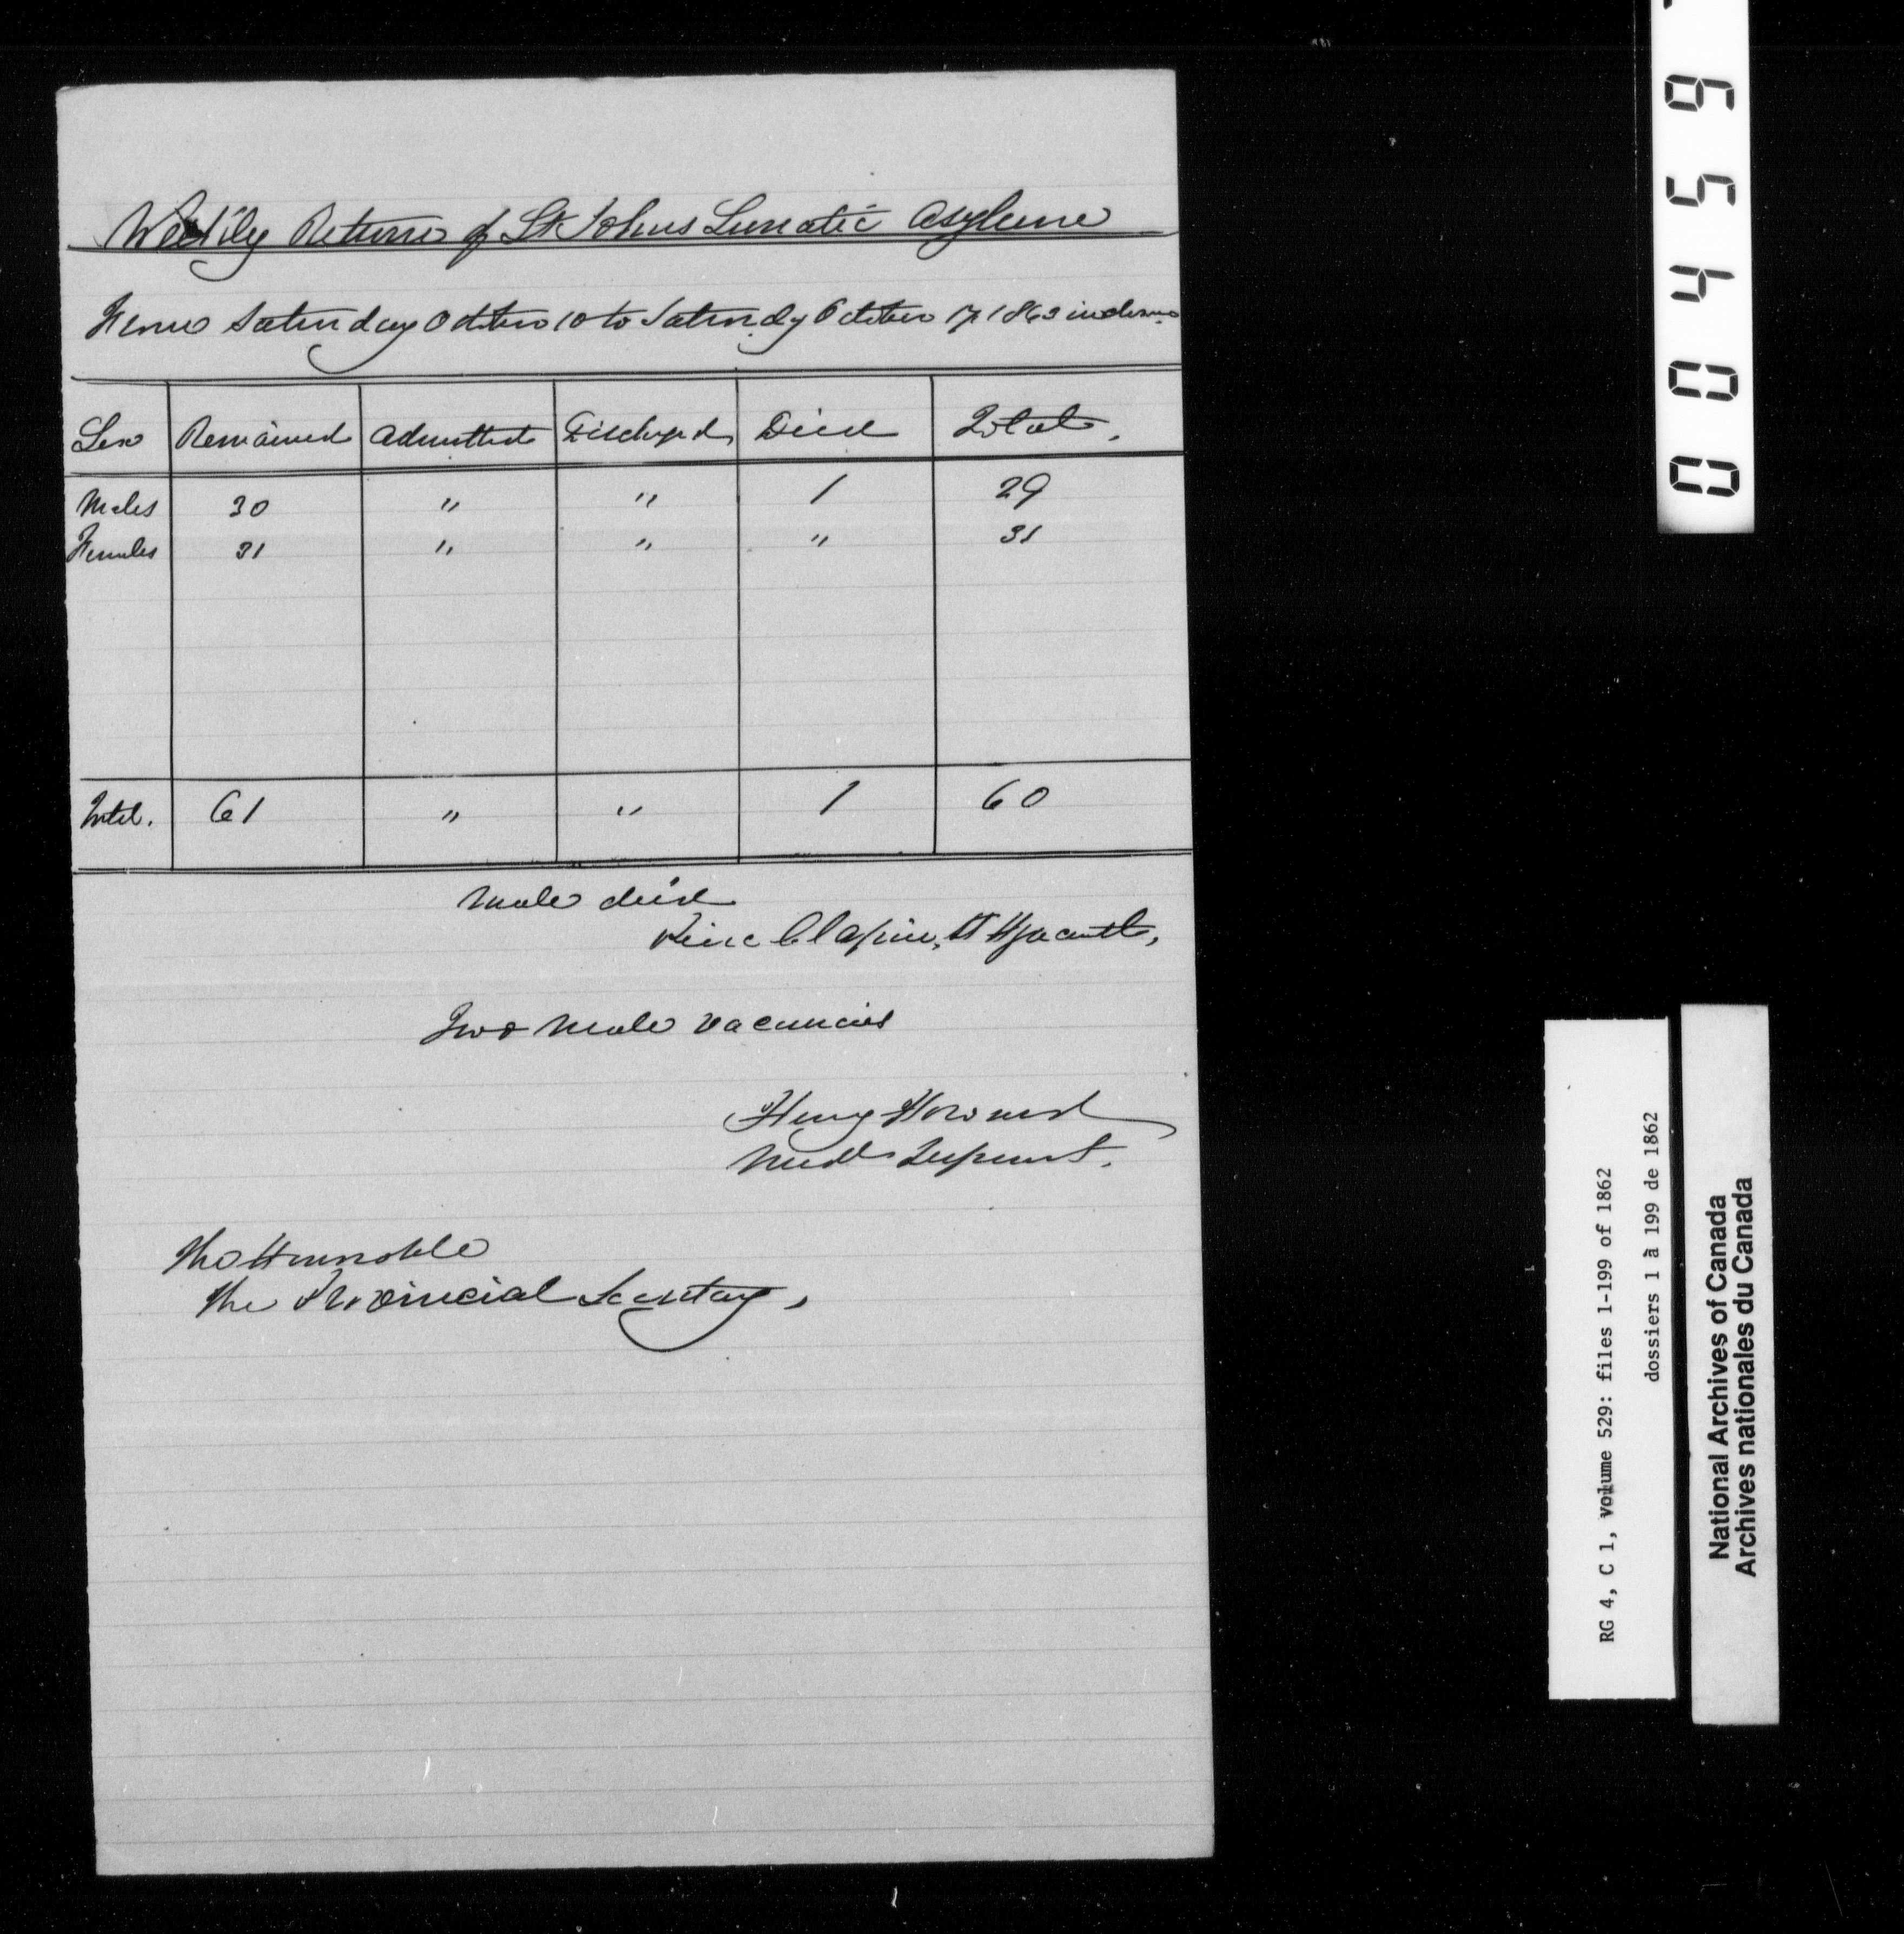 Weekly Return of St Johns Lunatic Asylum
From Saturday October 10 to Saturdy October 17 1863 inclusive
Sex Remained Admitted Discharged Died Total.
Males 30 " " 1 29
Females 31 " " " 31
Total. 61 " " 1 60
Male died
Clapin, St Hyacinth,
Two Male vacancies
Henry Howard
Medl Supernt.
The Honorable
The Provincial Secretary,
0 0 4 5 9
RG 4, C 1, volume 529: files 1-199 of 1862
dossiers 1 à 199 de 1862
National Archives of Canada
Archives nationales du Canada